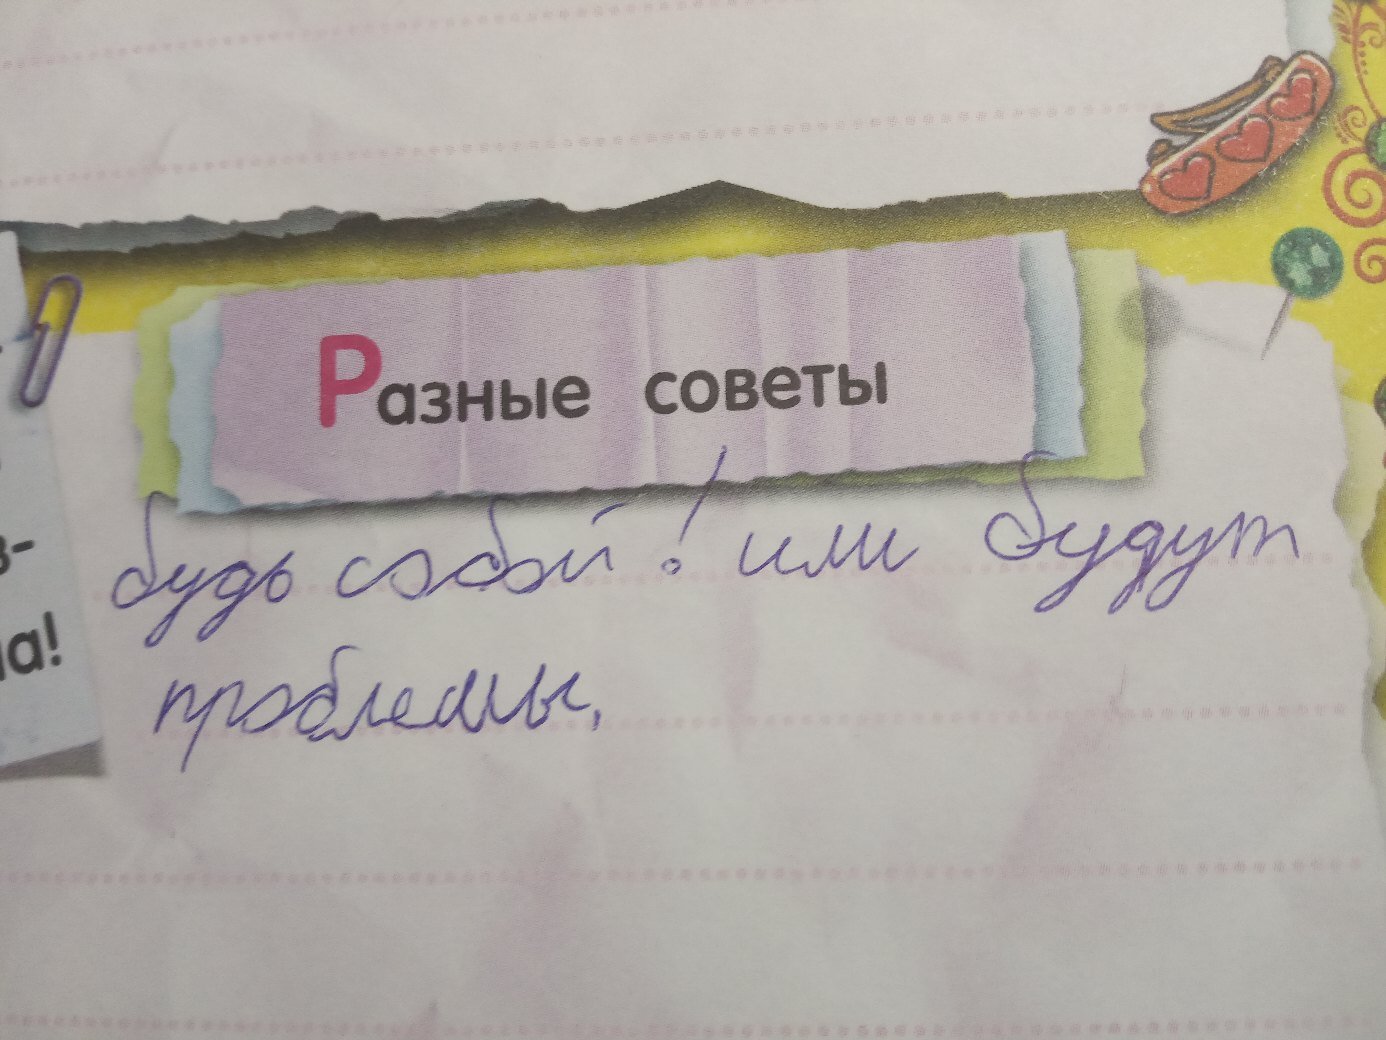 Разные советы
будь собой! или будут
проблемы.
в-
а!